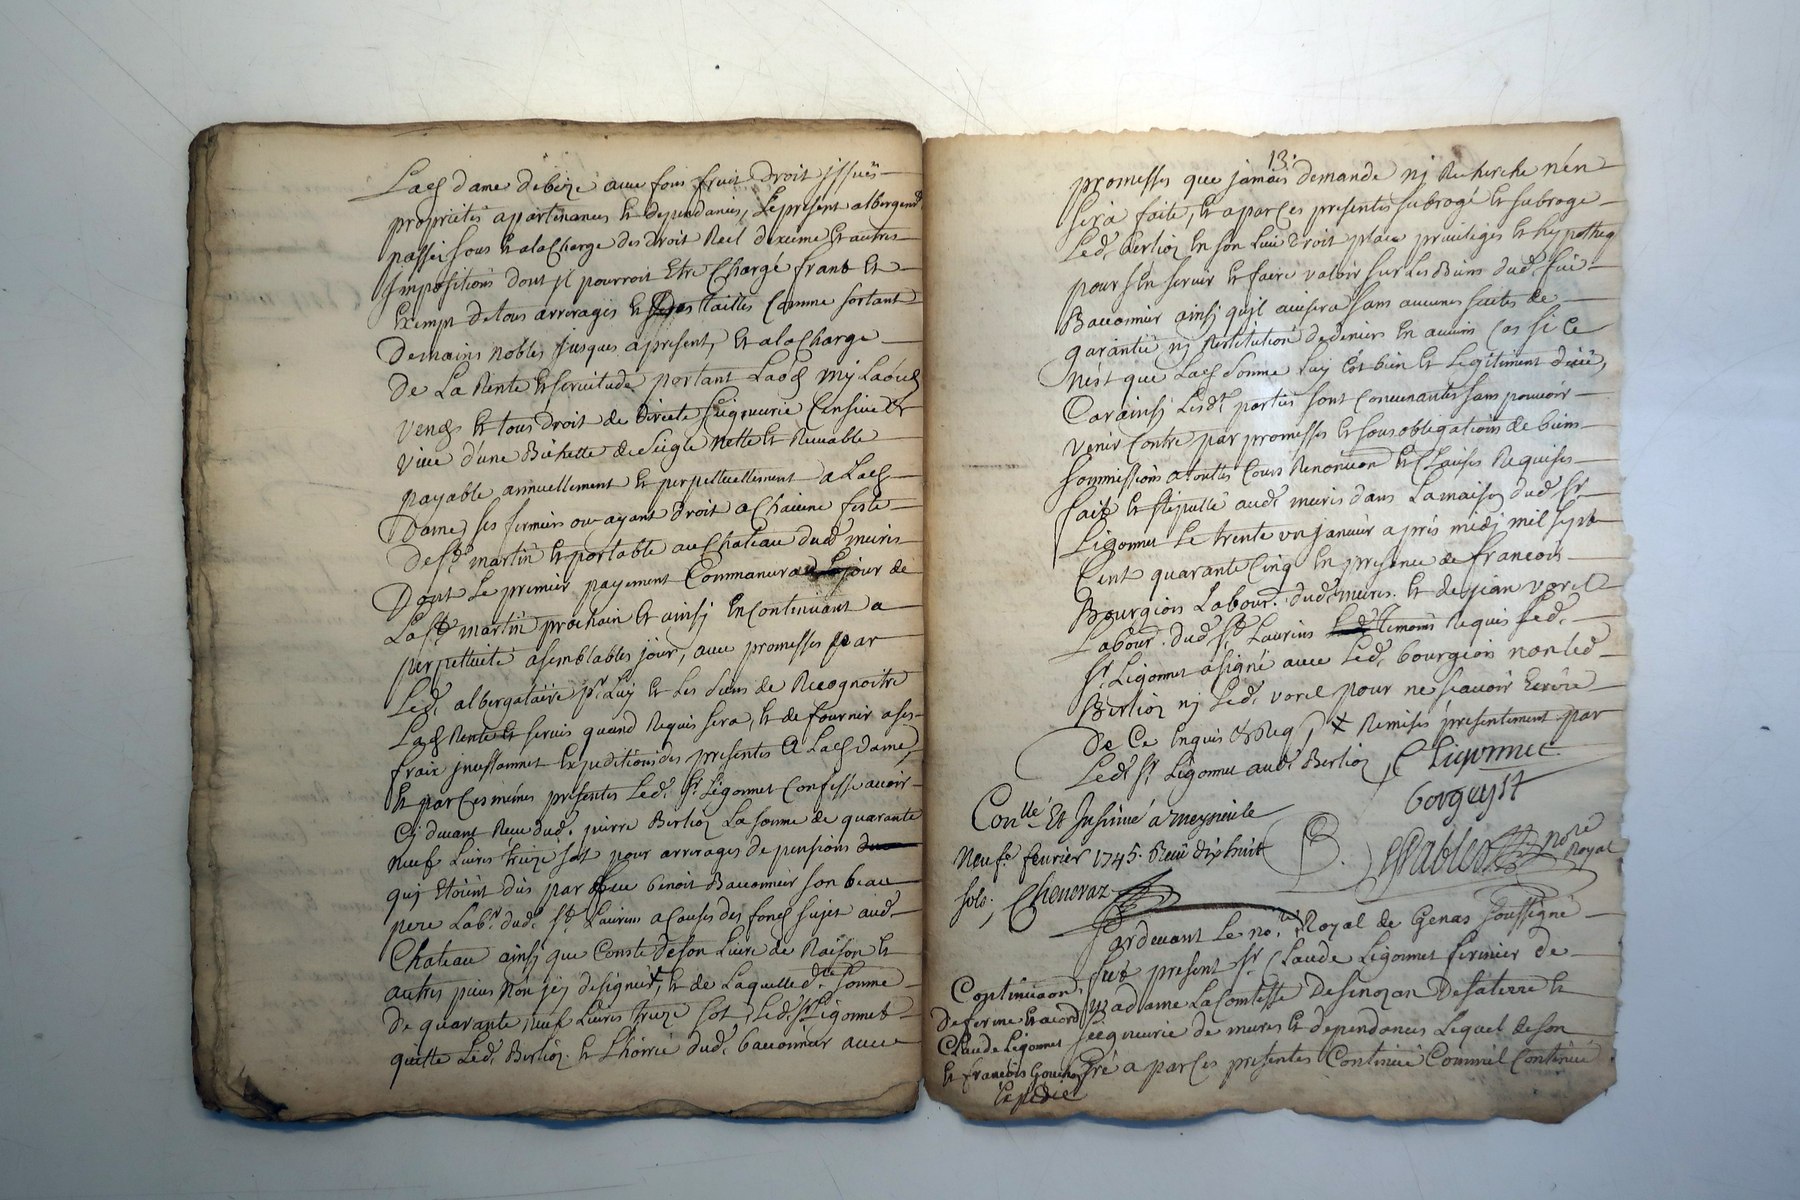 Lad dame debeze avec fons fruit droit jssuës
propriétés apartenances et dependances, Le present albergemt
passé sous et alacharge des droit Reel dixieme et autres
jmpositions dont jl pourroit Etre Chargé franc et
Exempt detous arrerages et tailles comme sortant
Demains nobles jusques apresent, Et alacharge
De La Rente et servitude portant Laods my Laods
Vends et tous droit de directe seigneurie Censive et
vive d'une Bichette de seigle nette et Recevable
payable annuellement et perpetuellement a Lad
Dame ses fermiers ou ayant droit a Chacune feste
De st martin et portable au Chateau dud meiris
Dont Le premier payement Commancera jour de
La st martin prochain Et ainsi En continuant a
perpettuité asemblables jour, avec promesses par
Led. albergataire pr Luy et Les siens de Recognoitre
Lad Rente et servis quand Requis sera, et de fournir ases
fraix jncessament Expeditions des presentes a Lad Dame,
Et par Ces mémes presentes Led. sr. Ligonnet Confesse avoir
Cy devant Receu dud. pierre Berlioz La somme de quarante
neuf Livres treize sol pour arrerages de pensions
quj Etoient dûs par feu benoit Bauconnier son beau
pere Labr. dud. st. Laurens a causes des fonds sujet aud.
Chateau ainsj que Conste deson Livre de Raison et
autres pieces non jcy designées, et de Laquelle de. somme
De quarante neuf Livres treize sol Led. sr Ligonnet
quitte Led. Berlioz. et L'hoirie dud. bauconnier avec
13.
promesses que jamais demande nj Recherche n'en
sera faite, et a par Ces presentes subrogé et subroge
Led. Berlioz En son Lieu droit place privileges et hypotheq
pour s'en servir et faire valoir sur Les Biens dud. feu
Bauconnier ainsj qu'il avisera sans aucunes suites de
garantie nj Restitution de deniers En aucun Cas si Ce
n'est que Lad somme Luy est bien et Legitiment dûe,
Car ainsj Lesdt parties sont Convenantes sans pouvoir
venir Contre par promesses et sous obligations de biens
sommissions a toutes Cours Renoncion et Clauses Requises
fait et stipullé aud. meiris dans La maison dud sr
Ligonnet Le trente un janvier après midj mil sept
Cent quarante Cinq En presence de francois
Bourgion Labour. dud. meiris. et de jean vorel
Labour. dud. st. Laurens temoins Requis Led.
sr. Ligonnet a signé avec Led. bourgion non Led
Berlioz nj Led. vorel pour ne scavoir Ecrire
De Ce Enquis et Req, Remises presentement par
Led. sr Ligonnet aud. Berlioz CLigonnet
bovguyst
Conllé Et Insinué a meyzieu le
Neufe. fevrier 1745. Reçu dix huit
sols. Cheneraz
nore Royal
Pardevant Le no.re Royal de Genas soussigné
fut present sr. Claude Ligonnet fermier de
madame La Comtesse De sa terre et
seigneurie de meires et dependances Lequel deson
gré a par Ces presentes Continué Comm'il Continue
Continuaon
De ferme
Claude Ligonnet
Et francois
Expedié